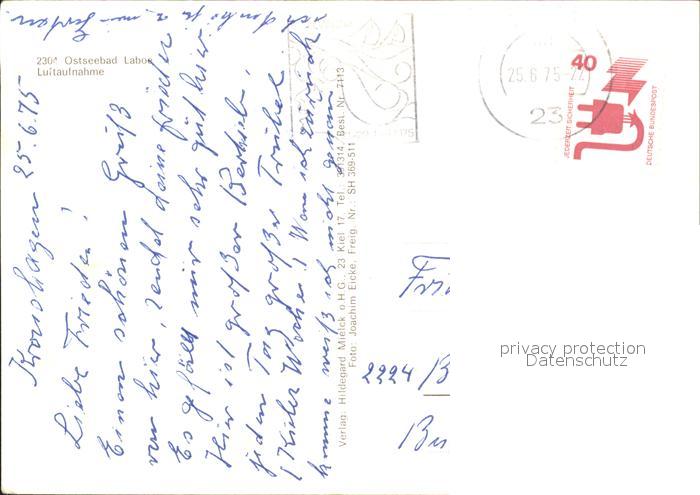 2304 Ostseebad Laboe
Luftaufnahme
Kronshagen 25.6.75
Liebe Frieder!
Einen schönen Gruß
von hier, sendet deine Frieder
Es gefällt mir sehr gut hier
Hier ist großer Betrieb.
jeden Tag großer Trubel
(Kieler Woche! Wann ich zurück
komme weiß ich nicht genau
Verlag: Hildegard Mielck o.H.G., 23 Kiel 17, Tel.: 391314, Best. Nr. 7113
Foto: Joachim Eicke, Freig. Nr.: SH 369-511
25.6.75-22
23
40
JEDERZEIT SICHERHEIT
DEUTSCHE BUNDESPOST
2224 B
privacy protection
Datenschutz